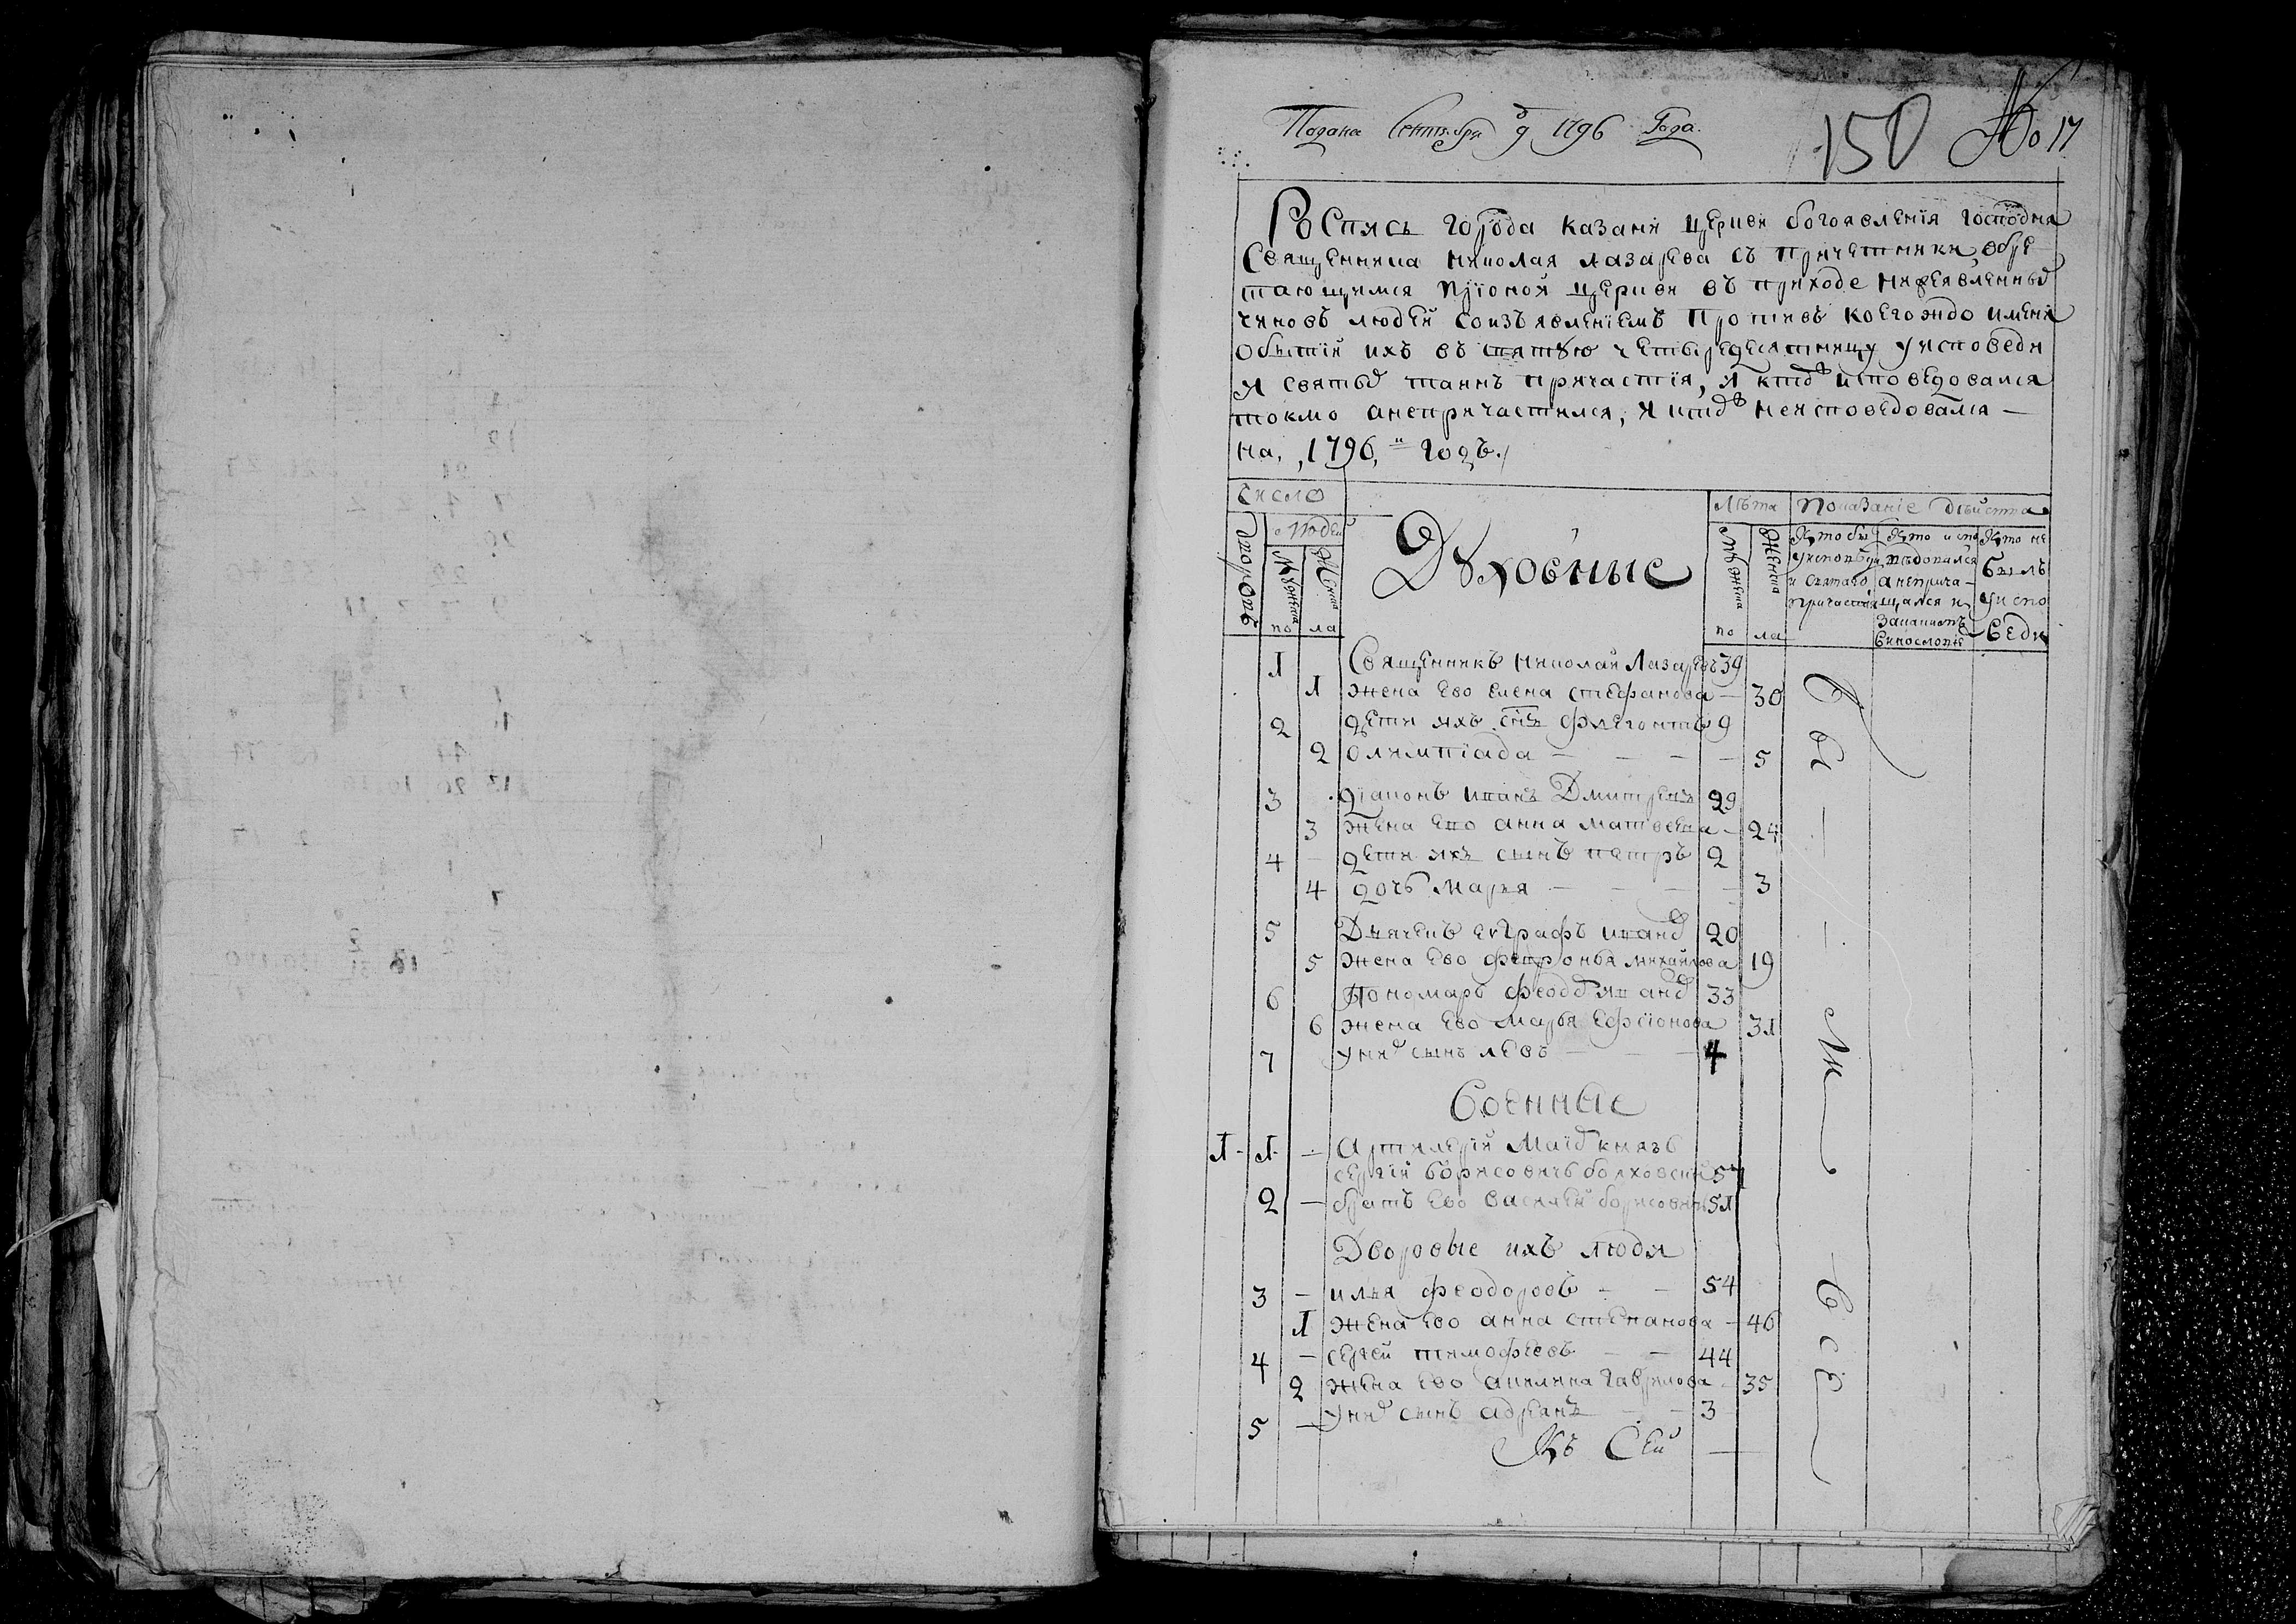 Подана Сентября 9 д 1796 Года.
150 No 17
Роспись города казани церкви богоявленiя господня
Священника николая лазарева съ причетники, обре
тающимся при оной церкви въ приходе нижеявленныхъ
чиновъ людей соизъявленiемъ противъ коегождо имени
обытiи ихъ въ святую четыредесятницу уисповеди
и святыхъ таинъ причастiя, и ктожъ исповедовался
токмо анепричастился, и ктожъ неисповедовался —
на, 1796, годъ.
Число Лѣта Показанiе дѣйства
людей
дворовъ Мужеска Женска Духовные Мужеска Женска
Кто был уисповеди и святаго причастия
Кто исповѣдовался а непричащался и за какимъ винословiе
Кто не былъ уисповеди
по ла по ла
1 Священникъ николай Лазаревъ 39
1 жена ево елена стефанова — 30
2 дети ихъ снъ флегонтъ 9
2 олимпiада — — — — 5
3 дiаконъ иванъ Дмитревъ 29
3 жена ево анна матвеева — 24
4 — дети ихъ сынъ петръ 2
4 дочь марья — — — — 3
5 Дьячекъ евграфъ иванд 20
5 жена ево феврониа михайлова 19
6 Пономарь феодд иванд 33
6 жена ево марья 31
7 унихъ сынъ левъ — — — 4
Военные
1 - 1 - — Артилерiи Маiод князь
сергiй борисовичь болховский 57
2 — братъ ево василей борисовичь 51
Дворовые ихъ люди
3 — илья феодоровъ — — 54
1 жена ево анна степанова — 46
4 — сергей тимофеевъ — — 44
2 жена ево акилина гаврилова 35
5 — унихъ сынъ адрианъ — — 3
Къ Сей —
Бы — — ли — Все